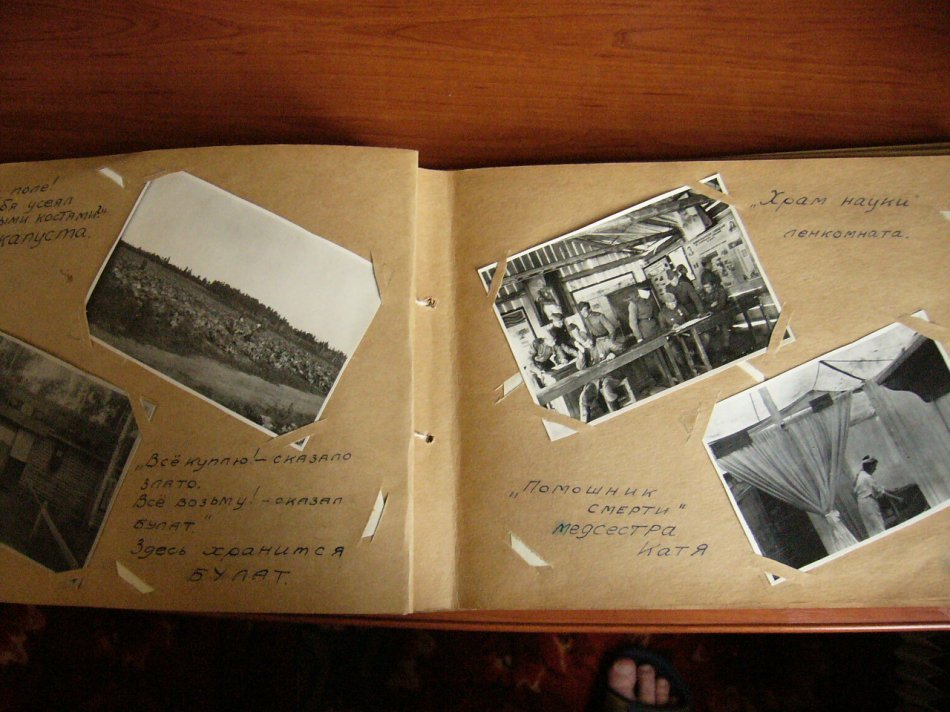 поле!
усеял
костями"
капуста.
„Всё куплю!– сказало
злато.
Всё возьму! – сказал
булат"
Здесь хранится
БУЛАТ.
„Храм науки"
ленкомната.
„Помошник
смерти"
медсестра
Катя